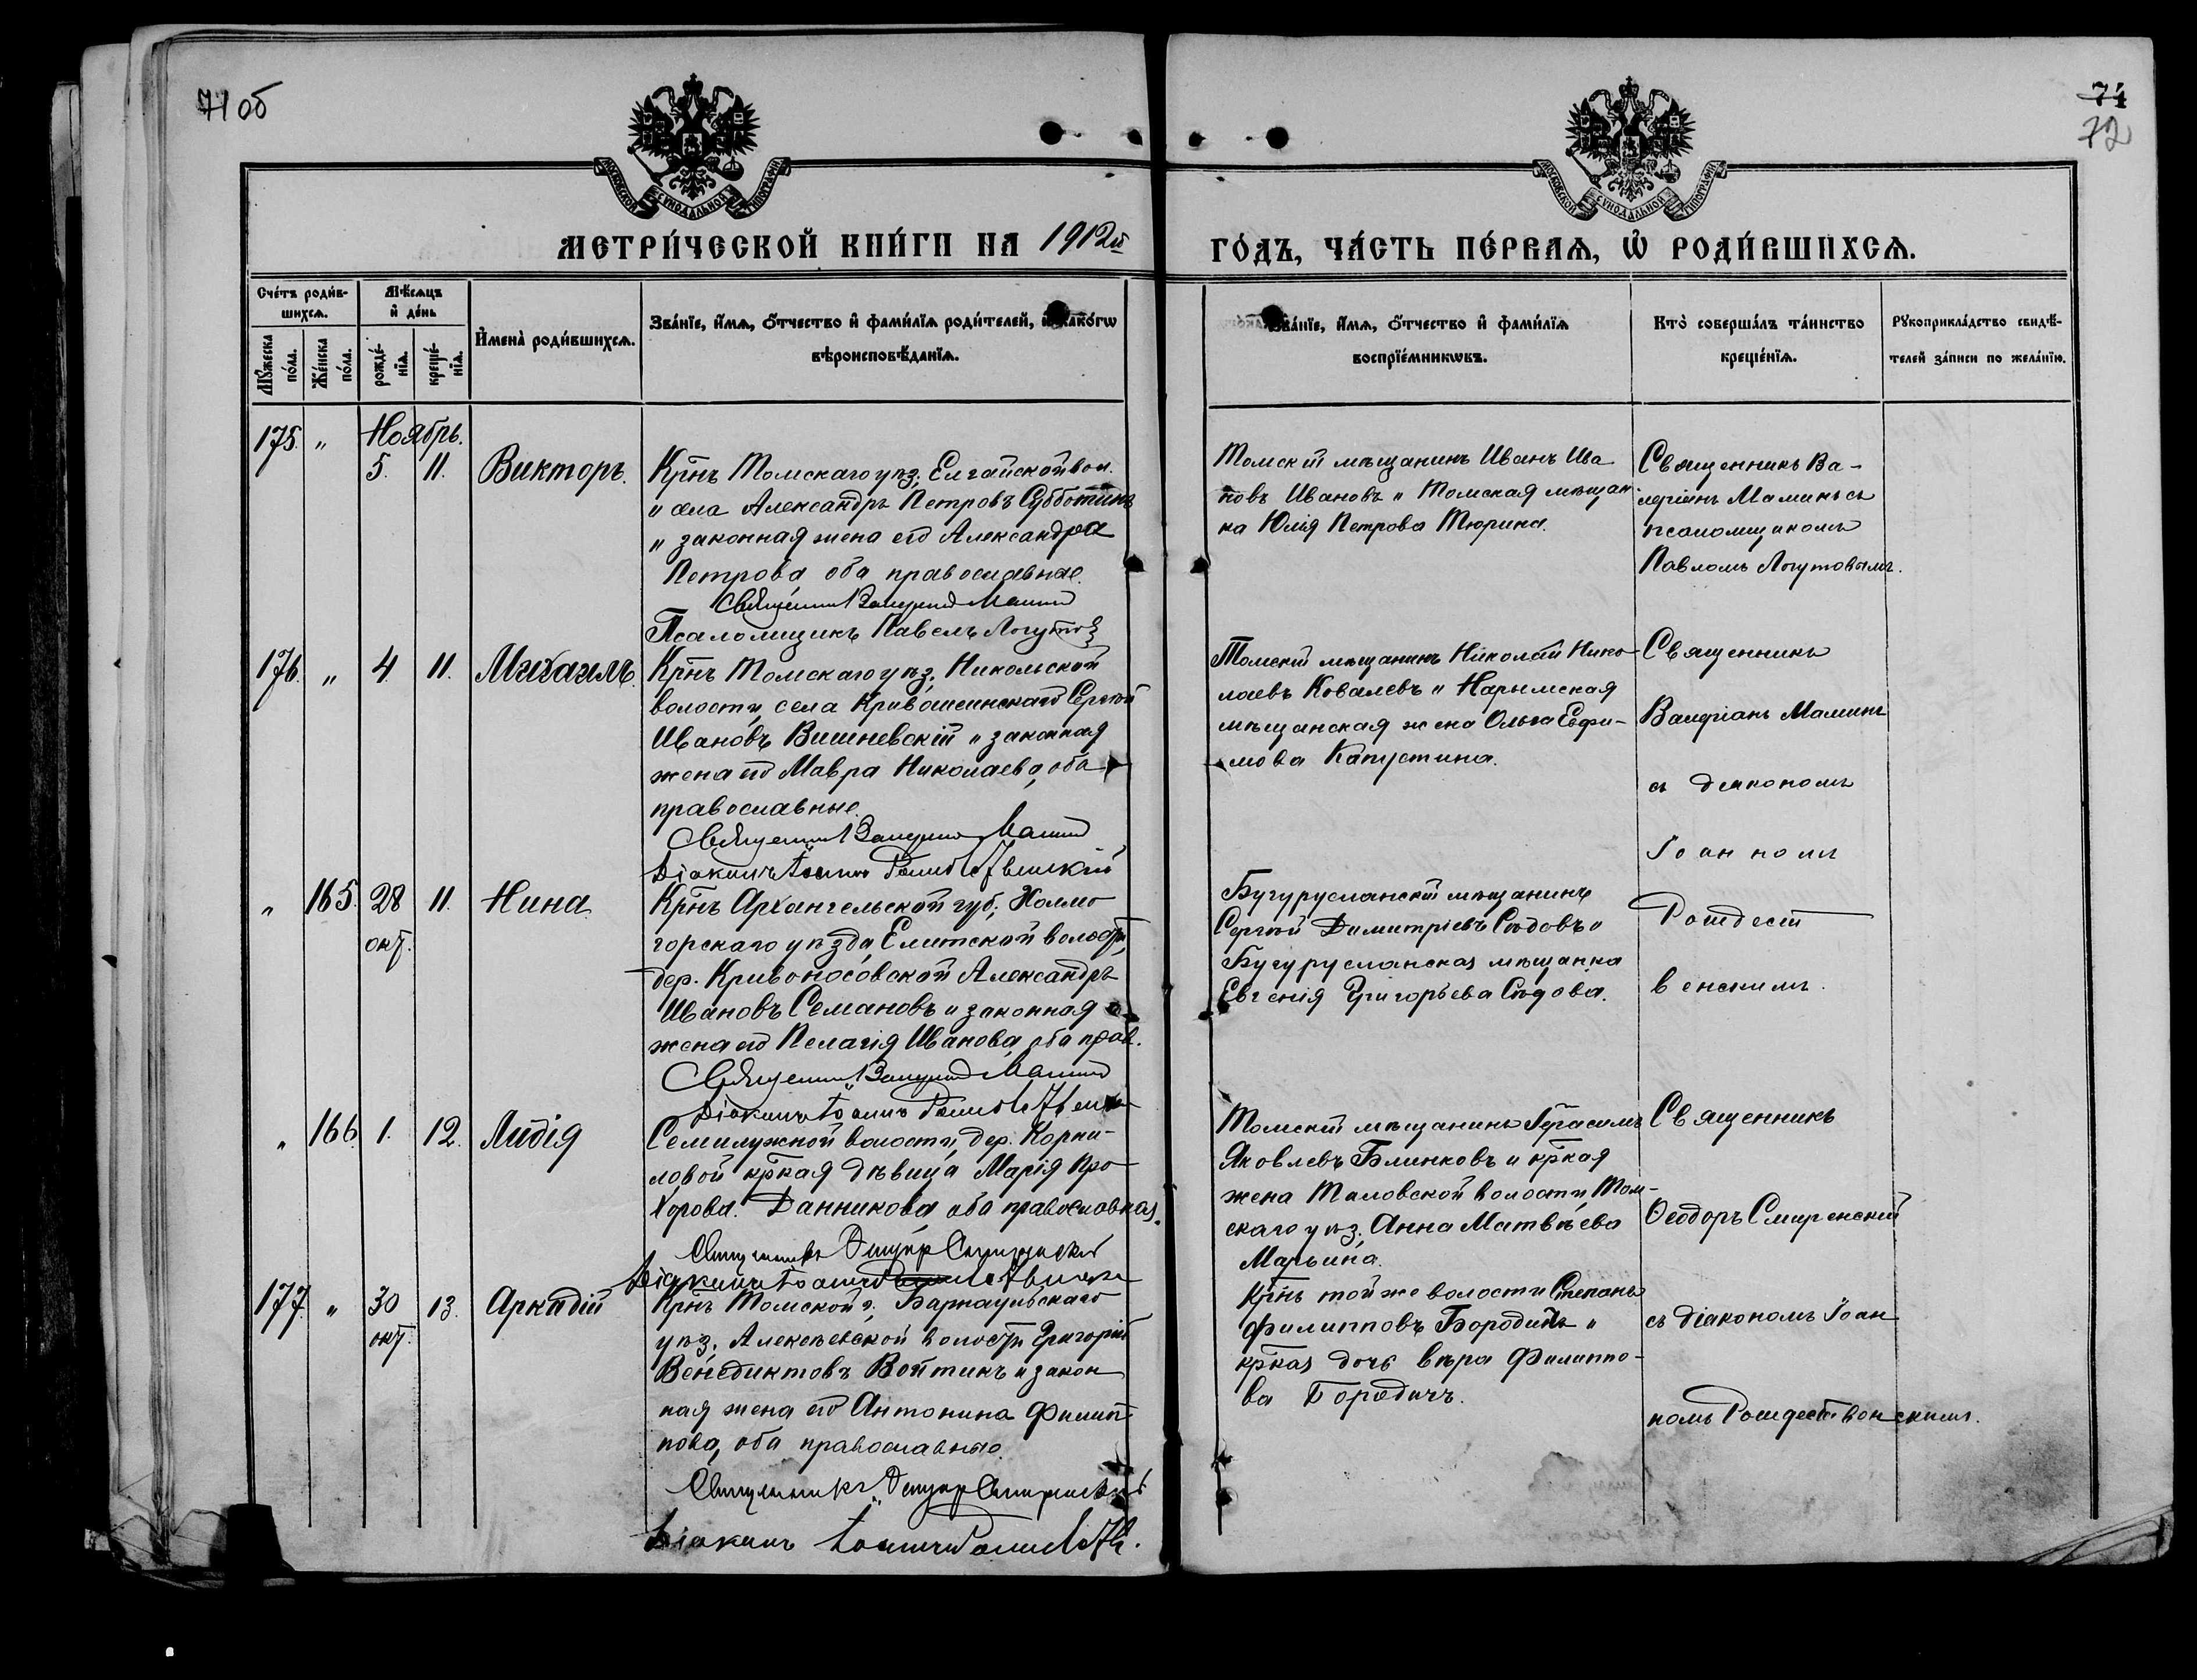 71 об
74
72
МОСКОВСКОЙ СѴНОДАЛЬНОЙ ТИПОГРАФІИ
МОСКОВСКОЙ СѴНОДАЛЬНОЙ ТИПОГРАФІИ
МЕТРИ́ЧЕСКОЙ КНИ́ГИ НА 1912й
ГО́ДЪ, ЧА́СТЬ ПЕ́РВАѦ, Ѡ҆ РОДИ́ВШИХСѦ.
Сче́тъ роди́в-
шихсѧ.
Мꙋ́жеска по́ла.
Же́нска по́ла.
Мѣ́сѧцъ
и҆ де́нь
рожде́-нїѧ.
креще́-нїѧ.
И҆мена̀ роди́вшихсѧ.
Зва́нїе, и҆́мѧ, ѻ҆́тчество и҆ фами́лїѧ роди́телей, и҆ како́гѡ
вѣроисповѣ́данїѧ.
Зва́нїе, и҆́мѧ, ѻ҆́тчество и҆ фами́лїѧ
воспрїе́мникѡвъ.
Кто̀ соверша́лъ та́инство
креще́нїѧ.
Рꙋкоприкла́дство свидѣ́-
телей за́писи по жела́нїю.
175. " Ноябрь.
5. 11. Викторъ.
Крнъ Томскаго уѣз. Елгайской вол.
и села Александръ Петровъ Субботинъ
и законная жена его Александра
Петрова оба православные.
Священникъ Валеріанъ Маминъ
Псаломщикъ Павелъ Логутов
Томскій мѣщанинъ Иванъ Ива
новъ Ивановъ и Томская мѣщан
ка Юлія Петрова Тюрина.
Священникъ Ва-
леріанъ Маминъ съ
псаломщикомъ
Павломъ Логутовымъ.
176. " 4. 11. Михаилъ.
Крнъ Томскаго уѣз. Никольской
волости, села Кривошеинскаго Сергѣй
Ивановъ Вишневскій и законная
жена его Мавра Николаева, оба
православные.
Священникъ Валеріанъ Маминъ
Діаконъ Іоаннъ Рождественскій
Томскій мѣщанинъ Николай Нико-
лаевъ Ковалевъ и Нарымская
мѣщанская жена Ольга Евфи-
мова Капустина.
Священникъ
Валеріанъ Маминъ
съ діакономъ
Іоанномъ
Рождест
венскимъ.
" 165. 28 11. Нина
окт.
Крнъ Архангельской губ., Холмо
горскаго уѣзда, Емитской волости,
дер. Кривоносовской Александръ
Ивановъ Семановъ и законная
жена его Пелагія Иванова, оба прав.
Священникъ Валеріанъ Маминъ
Діаконъ Іоаннъ Рождествен
Бугурусланскій мѣщанинъ
Сергѣй Димитріевъ Сѣдовъ и
Бугурусланская мѣщанка
Евгенія Григорьева Сѣдова.
" 166. 1. 12. Лидія
Семилужной волости, дер. Корни-
ловой крткая дѣвица Марія Про
хорова Данникова, оба православная.
Священникъ Ѳеодоръ Смиренскій
Діаконъ Іоаннъ Рождествен
Томскій мѣщанинъ Герасимъ
Яковлевъ Блинковъ и крткая
жена Таловской волости, Том-
скаго уѣз. Анна Матвѣева
Марьина.
Священникъ
Ѳеодоръ Смиренскій
177. " 30 13. Аркадій
окт.
Крнъ Томской г. Барнаульскаго
уѣз. Алексѣевской волости Григорій
Венедиктовъ Войтикъ и закон
ная жена его Антонина Филип
пова, оба православные.
Священникъ Ѳеодоръ Смиренскій
Діаконъ Іоаннъ Рождеств.
Крнъ той же волости Степанъ
Филипповъ Бородичъ и
крткая дочь Вѣра Филиппо-
ва Бородичъ.
съ діакономъ Іоан
номъ Рождественскимъ.